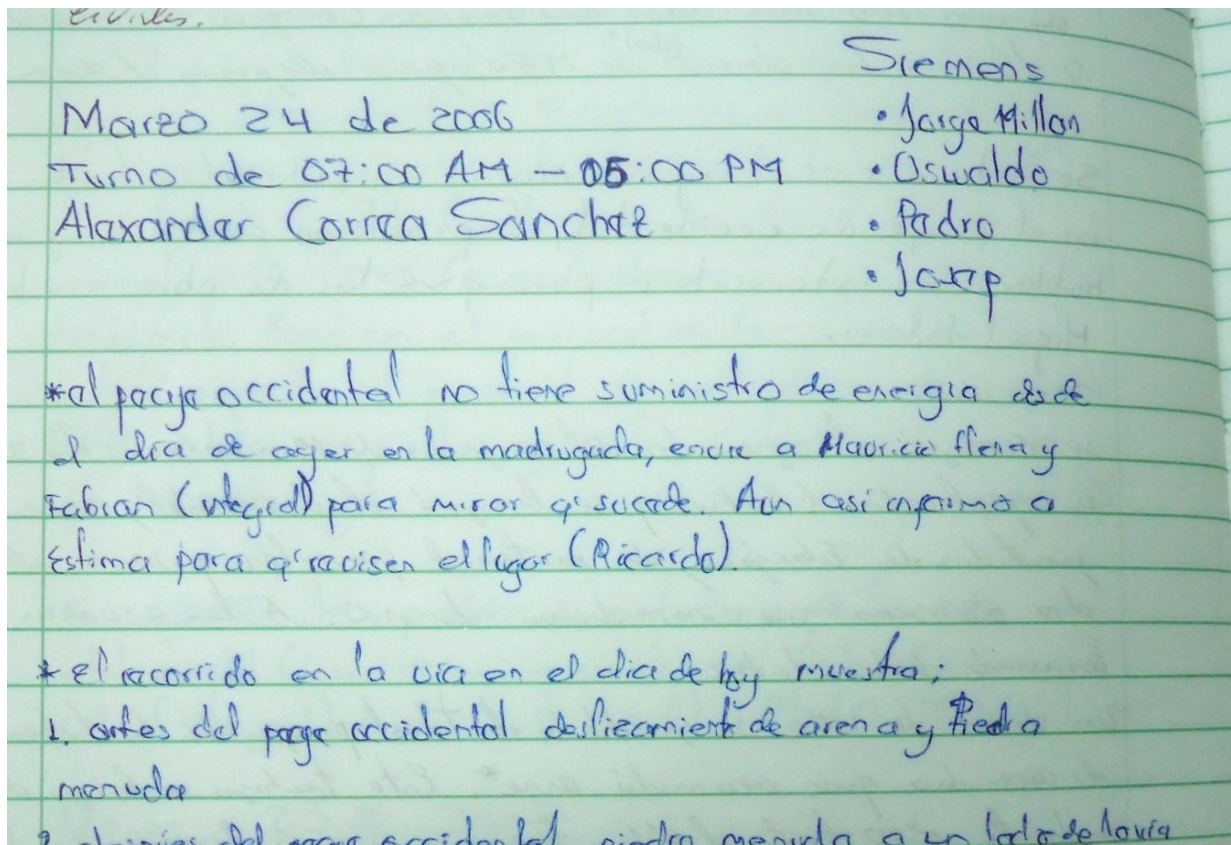 civiles.
Siemens
Marzo 24 de 2006
• Jorge Millan
Turno de 07:00 AM – 05:00 PM
• Oswaldo
Alexander Correa Sanchez
• Pedro
•
*el peaje occidental no tiene suministro de energia desde
el dia de ayer en la madrugada, envie a Mauricio y
Fabian (integral) para mirar q' sucede. Aun asi informo a
Estima para q' revisen el lugar (Ricardo).
* el recorrido en la via en el dia de hoy muestra:
1. antes del peaje occidental deslizamient de arena y Piedra
menuda
2. despues del peaje occidental piedra menuda a un lado de la via